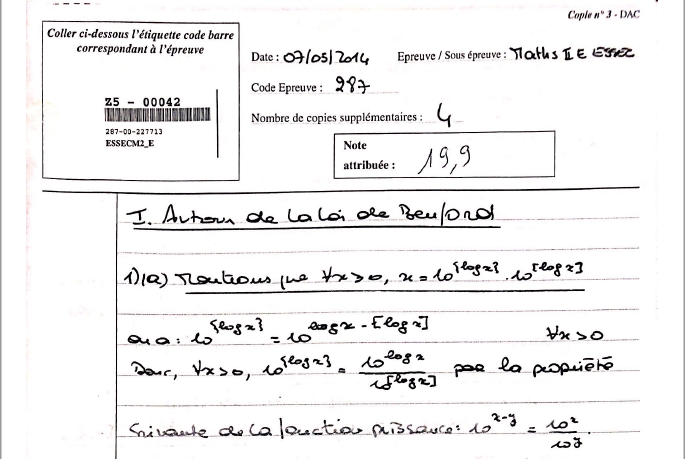 Copie n° 3 - DAC
Coller ci-dessous l'étiquette code barre
correspondant à l'épreuve
Date : 07/05/2014 Epreuve / Sous épreuve : Maths II E ESSEC
Code Epreuve : 287
Z5 - 00042
Nombre de copies supplémentaires : 4
287-00-227713
ESSECM2_E
Note
attribuée : 19,9
I. Autour de la loi de Benford
1)(a) Montrons que ∀x>0, x = 10^{log x} . 10^[log x]
on a : 10^{log x} = 10^(log x - [log x]) ∀x>0
Donc, ∀x>0, 10^{log x} = 10^(log x) / 10^[log x] par la propriété
suivante de la fonction puissance : 10^(x-y) = 10^x / 10^y.